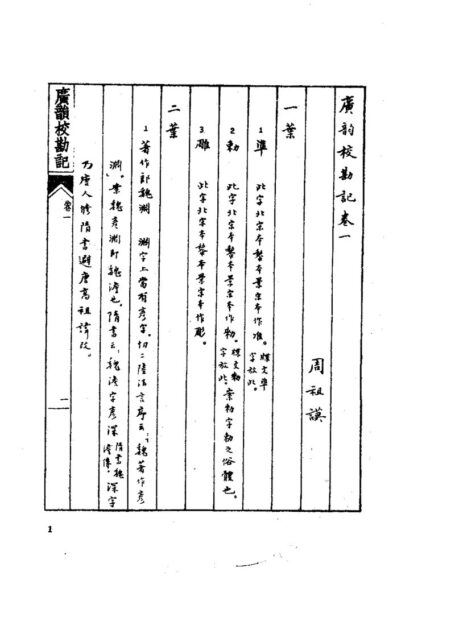 廣韵校勘記卷一
周祖謨
一葉
1 準 此字北宋本黎本景宋本作准。牒文準字放此。
2 勅 此字北宋本黎本景宋本作勑。牒文勅字放此。案勑字勅之俗體也。
3 雕 此字北宋本黎本景宋本作彫。
二葉
1 著作郎魏淵 淵字上當有彥字。切二陸法言序云:「魏著作彥
淵」。案魏彥淵即魏澹也。隋書云:魏澹字彥深隋書魏澹傳。深字
乃唐人修隋書避唐高祖諱改。
廣韵校勘記
卷一
一
1